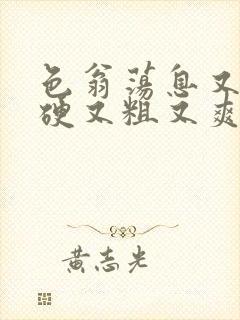 色翁荡息又
硬又粗又爽
黄志光